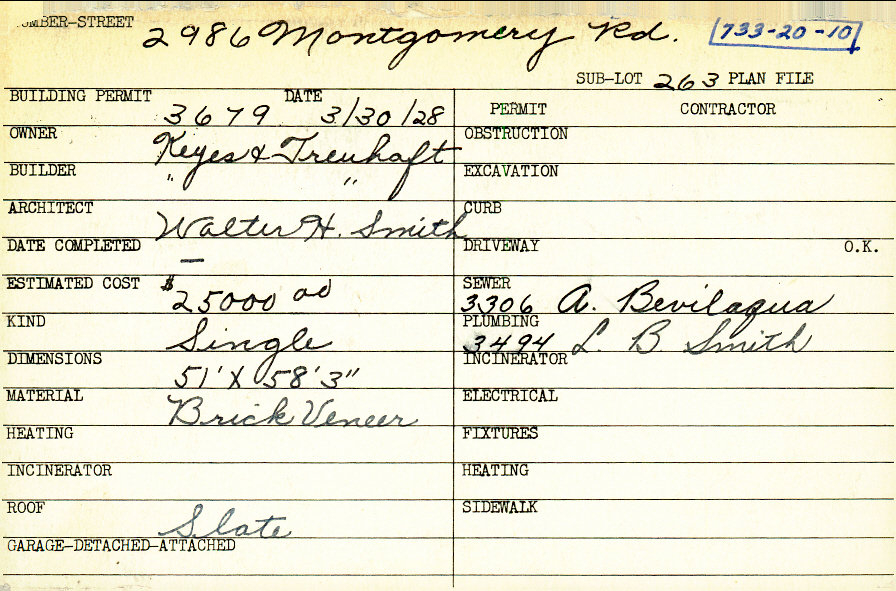 NUMBER-STREET 2986 Montgomery Rd. 733-20-10
SUB-LOT 263 PLAN FILE
BUILDING PERMIT 3679 DATE 3/30/28
PERMIT CONTRACTOR
OWNER Keyes & Treuhaft
OBSTRUCTION
BUILDER " "
EXCAVATION
ARCHITECT Walter H. Smith
CURB
DATE COMPLETED —
DRIVEWAY O.K.
ESTIMATED COST $25000 00
SEWER 3306 A. Bevilaqua
KIND Single
PLUMBING 3494 L. B. Smith
DIMENSIONS 51' X 58' 3"
INCINERATOR
MATERIAL Brick Veneer
ELECTRICAL
HEATING
FIXTURES
INCINERATOR
HEATING
ROOF Slate
SIDEWALK
GARAGE-DETACHED-ATTACHED